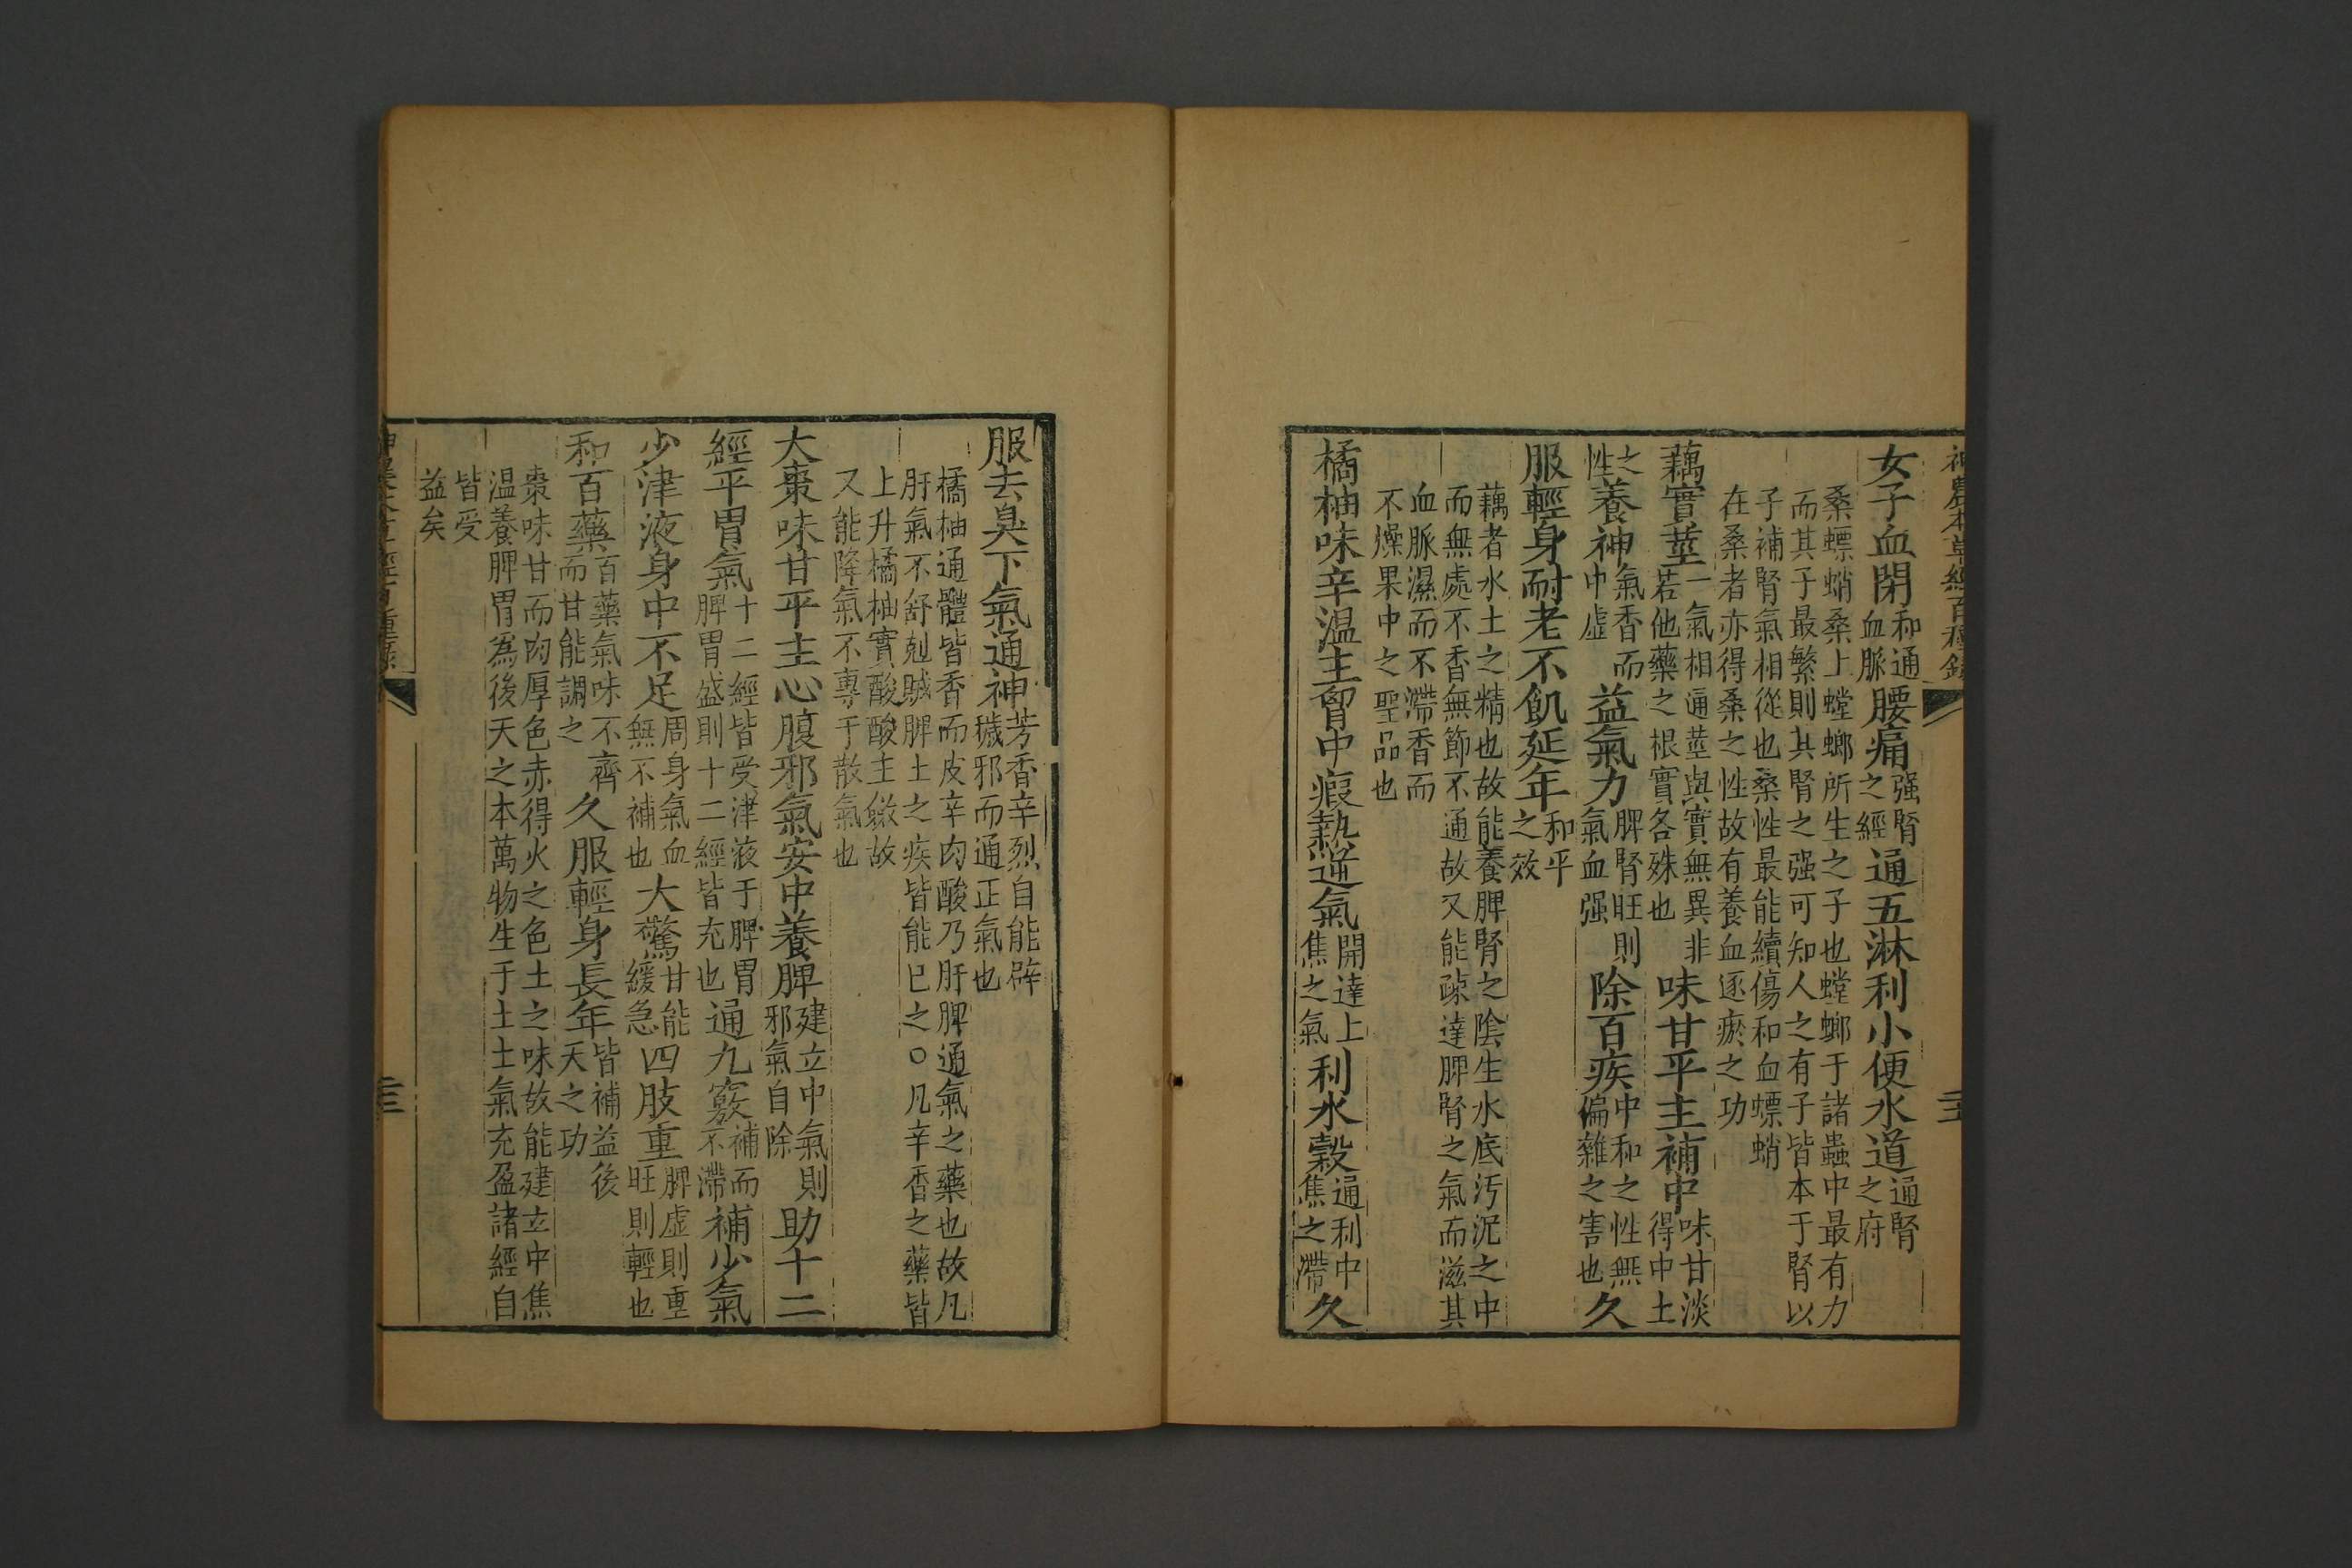 神農本草經百種錄
女子血閉和通血脈腰痛强腎之經通五淋利小便水道通腎之府
桑螵蛸桑上螳螂所生之子也螳螂于諸蟲中最有力
而其子最繁則其腎之强可知人之有子皆本于腎以
子補腎氣相從也桑性最能續傷和血螵蛸
在桑者亦得桑之性故有養血逐瘀之功
藕實莖一氣相通莖與實無異非若他藥之根實各殊也味甘平主補中味甘淡得中土
之性養神氣香而中虛益氣力脾腎旺則氣血强除百疾中和之性無偏雜之害也久
服輕身耐老不飢延年和平之效
藕者水土之精也故能養脾腎之陰生水底汚泥之中
而無處不香無節不通故又能疎達脾腎之氣而滋其
血脈濕而不滯香而
不燥果中之聖品也
橘柚味辛温主胷中瘕熱逆氣開達上焦之氣利水穀通利中焦之滯久
服去臭下氣通神芳香辛烈自能辟穢邪而通正氣也
橘柚通體皆香而皮辛肉酸乃肝脾通氣之藥也故凡
肝氣不舒剋賊脾土之疾皆能已之○凡辛香之藥皆
上升橘柚實酸酸主斂故
又能降氣不專于散氣也
大棗味甘平主心腹邪氣安中養脾建立中氣則邪氣自除助十二
經平胃氣十二經皆受津液于脾胃脾胃盛則十二經皆充也通九竅補而不滯補少氣
少津液身中不足周身氣血無不補也大驚甘能緩急四肢重脾虛則重旺則輕也
和百藥百藥氣味不齊而甘能調之久服輕身長年皆補益後天之功
棗味甘而肉厚色赤得火之色土之味故能建立中焦
温養脾胃為後天之本萬物生于土土氣充盈諸經自
皆受
益矣